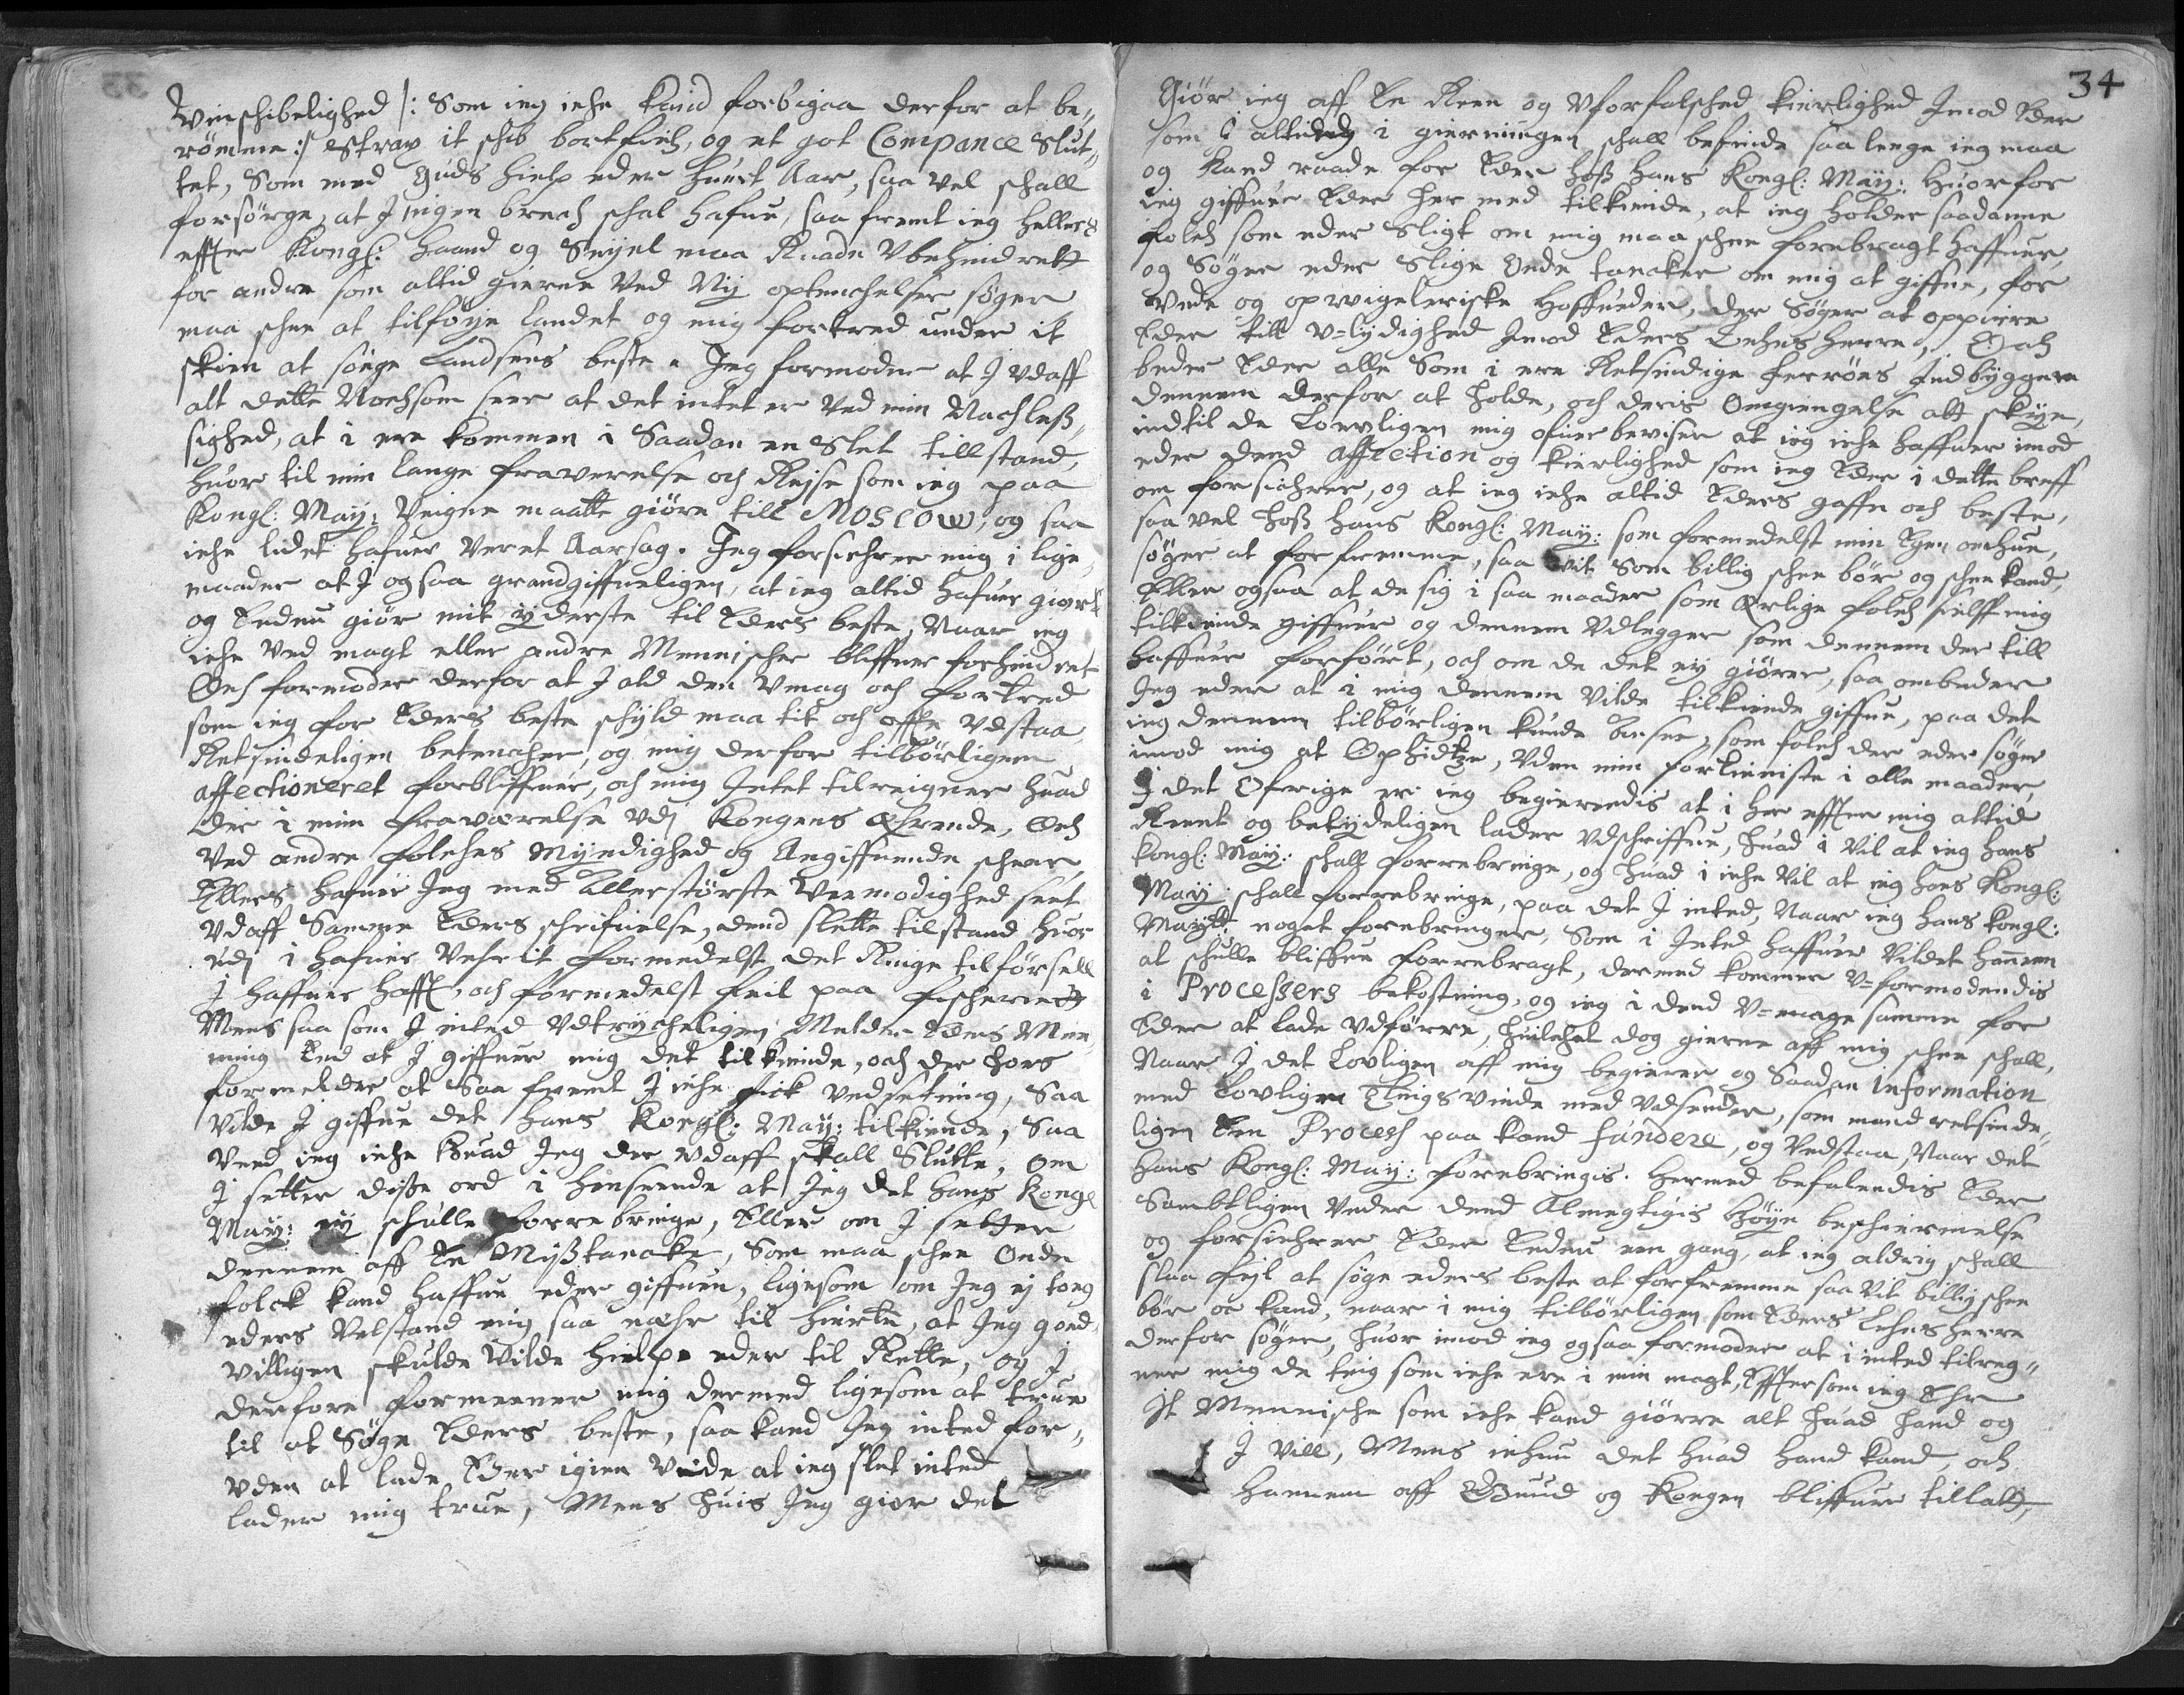 Winschibelighed /: Som ieg iche kand forbigaa derfor at be„
römme :/ Strax it schib bortfick, og et got Compance Slut„
tet, Som med Guds hielp eder huert Aar, saa vel schall
forsörge, at J ingen breck schal hafue, saa fremt ieg hellers
effter Kongl: haand og Seigel maa Raade Vbehindrett
for andre som altid gierne Ved Ny optenchelser söger
maa schee at tilföye landet og mig fortred under it
skien at söige Landsens beste. Jeg formoder at J vdaff
alt dette Nochsom seer at det intet er Ved min Nachles„
sighed, at i ere kommen i Saadan en Slet tillstand,
huor til min lange fraverelse och Reise som ieg paa
Kongl: May: Veigne maatte giöre till Moscow, og saa
iche lidet hafuer veret Aarsag. Jeg forsichrer mig i lige
maader at J ogsaa grandgiffueligen, at ieg altid hafuer giort
og Endnu giör mit yderste til Eders beste, Naar ieg
iche Ved magt eller andre Mennischer bliffuer forhindret
Och formoder derfor at J ald den Vmag och fortred
som ieg for Eders beste schyld maa tit och offte vdstaa
Retsindeligen betencher, og mig derfor tilbörligen
affectioneret forbliffuer, och mig Intet tilreigner huad
der i min fraværelse vdj Kongens Ehrende, Och
Ved andre folches Myndighed og Angiffuende scheer,
Ellers hafuer Jeg med Allerstörste Veemodighed seet
vdaff Samme Eders schrifuelse, dend slette tilstand huor
udj i hafuer Vehrit formedelst det Ringe tilförsell
J haffuer hafft, och formedelst feil paa fischeriett
Mens saa som J inted Vdtrycheligen Melder Eders Mee„
ning End at J giffuer mig det tilkiende, och der hos
formelder at Saa fremt J iche fick Undsetning, Saa
Vilde J giffue det hans Kongl: May: tilkiende, Saa
Veed ieg iche huad Jeg der vdaff skall Slutte, om
J setter disse ord i henseende at Jeg det hans Kongl
May: ey schulle forrebringe, Eller om J setter
dennem aff En Mistancke, Som maa schee Onde
folck kand haffue eder giffuen, ligesom om Jeg ej tog
eders Velstand mig saa nehr til hierte, at Jeg goed„
villigen skulde Vilde hielpe eder til Rette, og J
derfore formeener mig dermed ligesom at true
til at Söge Eders beste, saa kand Jeg inted for„
vden at lade Eder igien Vide at ieg slet inted
lader mig true, Mens huis Jeg giör det
34
Giör ieg aff En Reen og Vforfalsched kierlighed Imod Eder
som J altidtz i gierningen schall befinde saa lenge ieg maa
og kand raade for Eder hoss hans Kongl: May: huorfor
ieg giffuer Eder her med tilkiende, at ieg holder saadanne
folch som eder Sligt om mig maa schee forebragt haffuer,
og Söger eder Slige Onde tancker om mig at giffue, for
Onde og oprvigeleriske hoffueder, der Söger at oppirre
Eder till V=lydighed Imod Eders Lehns herre, Och
beder Eder alle Som i ere Retsindige ferröes Indbyggere
dennem derfor at holde, och deris omgiengelse att skye,
indtil de Lovligen mig ofuer beviser at ieg iche haffuer imod
eder dend affection og kierlighed som ieg Eder i dette breff
om forsichrer, og at ieg iche altid Eders gaffn och beste,
saa vel hoss hans Kongl: May: som formedelst min Egen omhue,
söger at forfremme, saa vit Som billig schee bör og schee kand,
Eller ogsaa at de sig i saa maader som Ærlige folch sielff mig
tilkiende giffuer og dennem Vdlegger som dennem der till
haffuer forfört, och om de det ey giörer, saa ombeder
Jeg eder at i mig dennem Vilde tilkiende giffue, paa det
ieg dennem tilbörligen kunde ansee, som folch der eder söger
imod mig at Ophidtze, Vden min fortieniste i alle maader,
J det Öfrige er ieg begierendis at i her effter mig altid
Reent og betydeligen lader Vdschriffue, huad i Vil at ieg hans
Kongl: May: schall forrebringe, og huad i iche Vil at ieg hans Kongl:
May: schall forrebringe, paa det J inted, Naar ieg hans Kongl:
Maytt: noget forebringer, Som i Inted haffuer Vildet hannem
at schulle bliffue forrebragt, dermed kommer V=formodendis
i Processers bekostning, og ieg i dend V=mage samme for
Eder at lade Vdförre, huilchet dog gierne aff mig schee schall,
Naar J det Lovligen aff mig begierer og Saadan information
med Lovlige Tingsvinde med vdsender, som mand retsinde„
ligen Een Process paa kand fundere, og Vedstaa, Naar det
hans Kongl: May: forebringis. Hermed befalendis Eder
Sambtligen Under dend Almegtigis höye beschiermelse
og forsichrer Eder Endnu een gang, at ieg aldrig schall
slaa feyl at söge eders beste at forfremme saa Vit billig schee
bör oc kand, naar i mig tilbörligen som Eders Lehns herre
derfor söger, huor imod ieg ogsaa formoder at i inted tilreg„
ner mig de ting som iche ere i min magt, Efftersom ieg Ehr
It Mennische som iche kand giörre alt huad hand og
J Vill, Mens ichun det huad hand kand, och
hannem aff Guud og Kongen bliffuer tillatt,